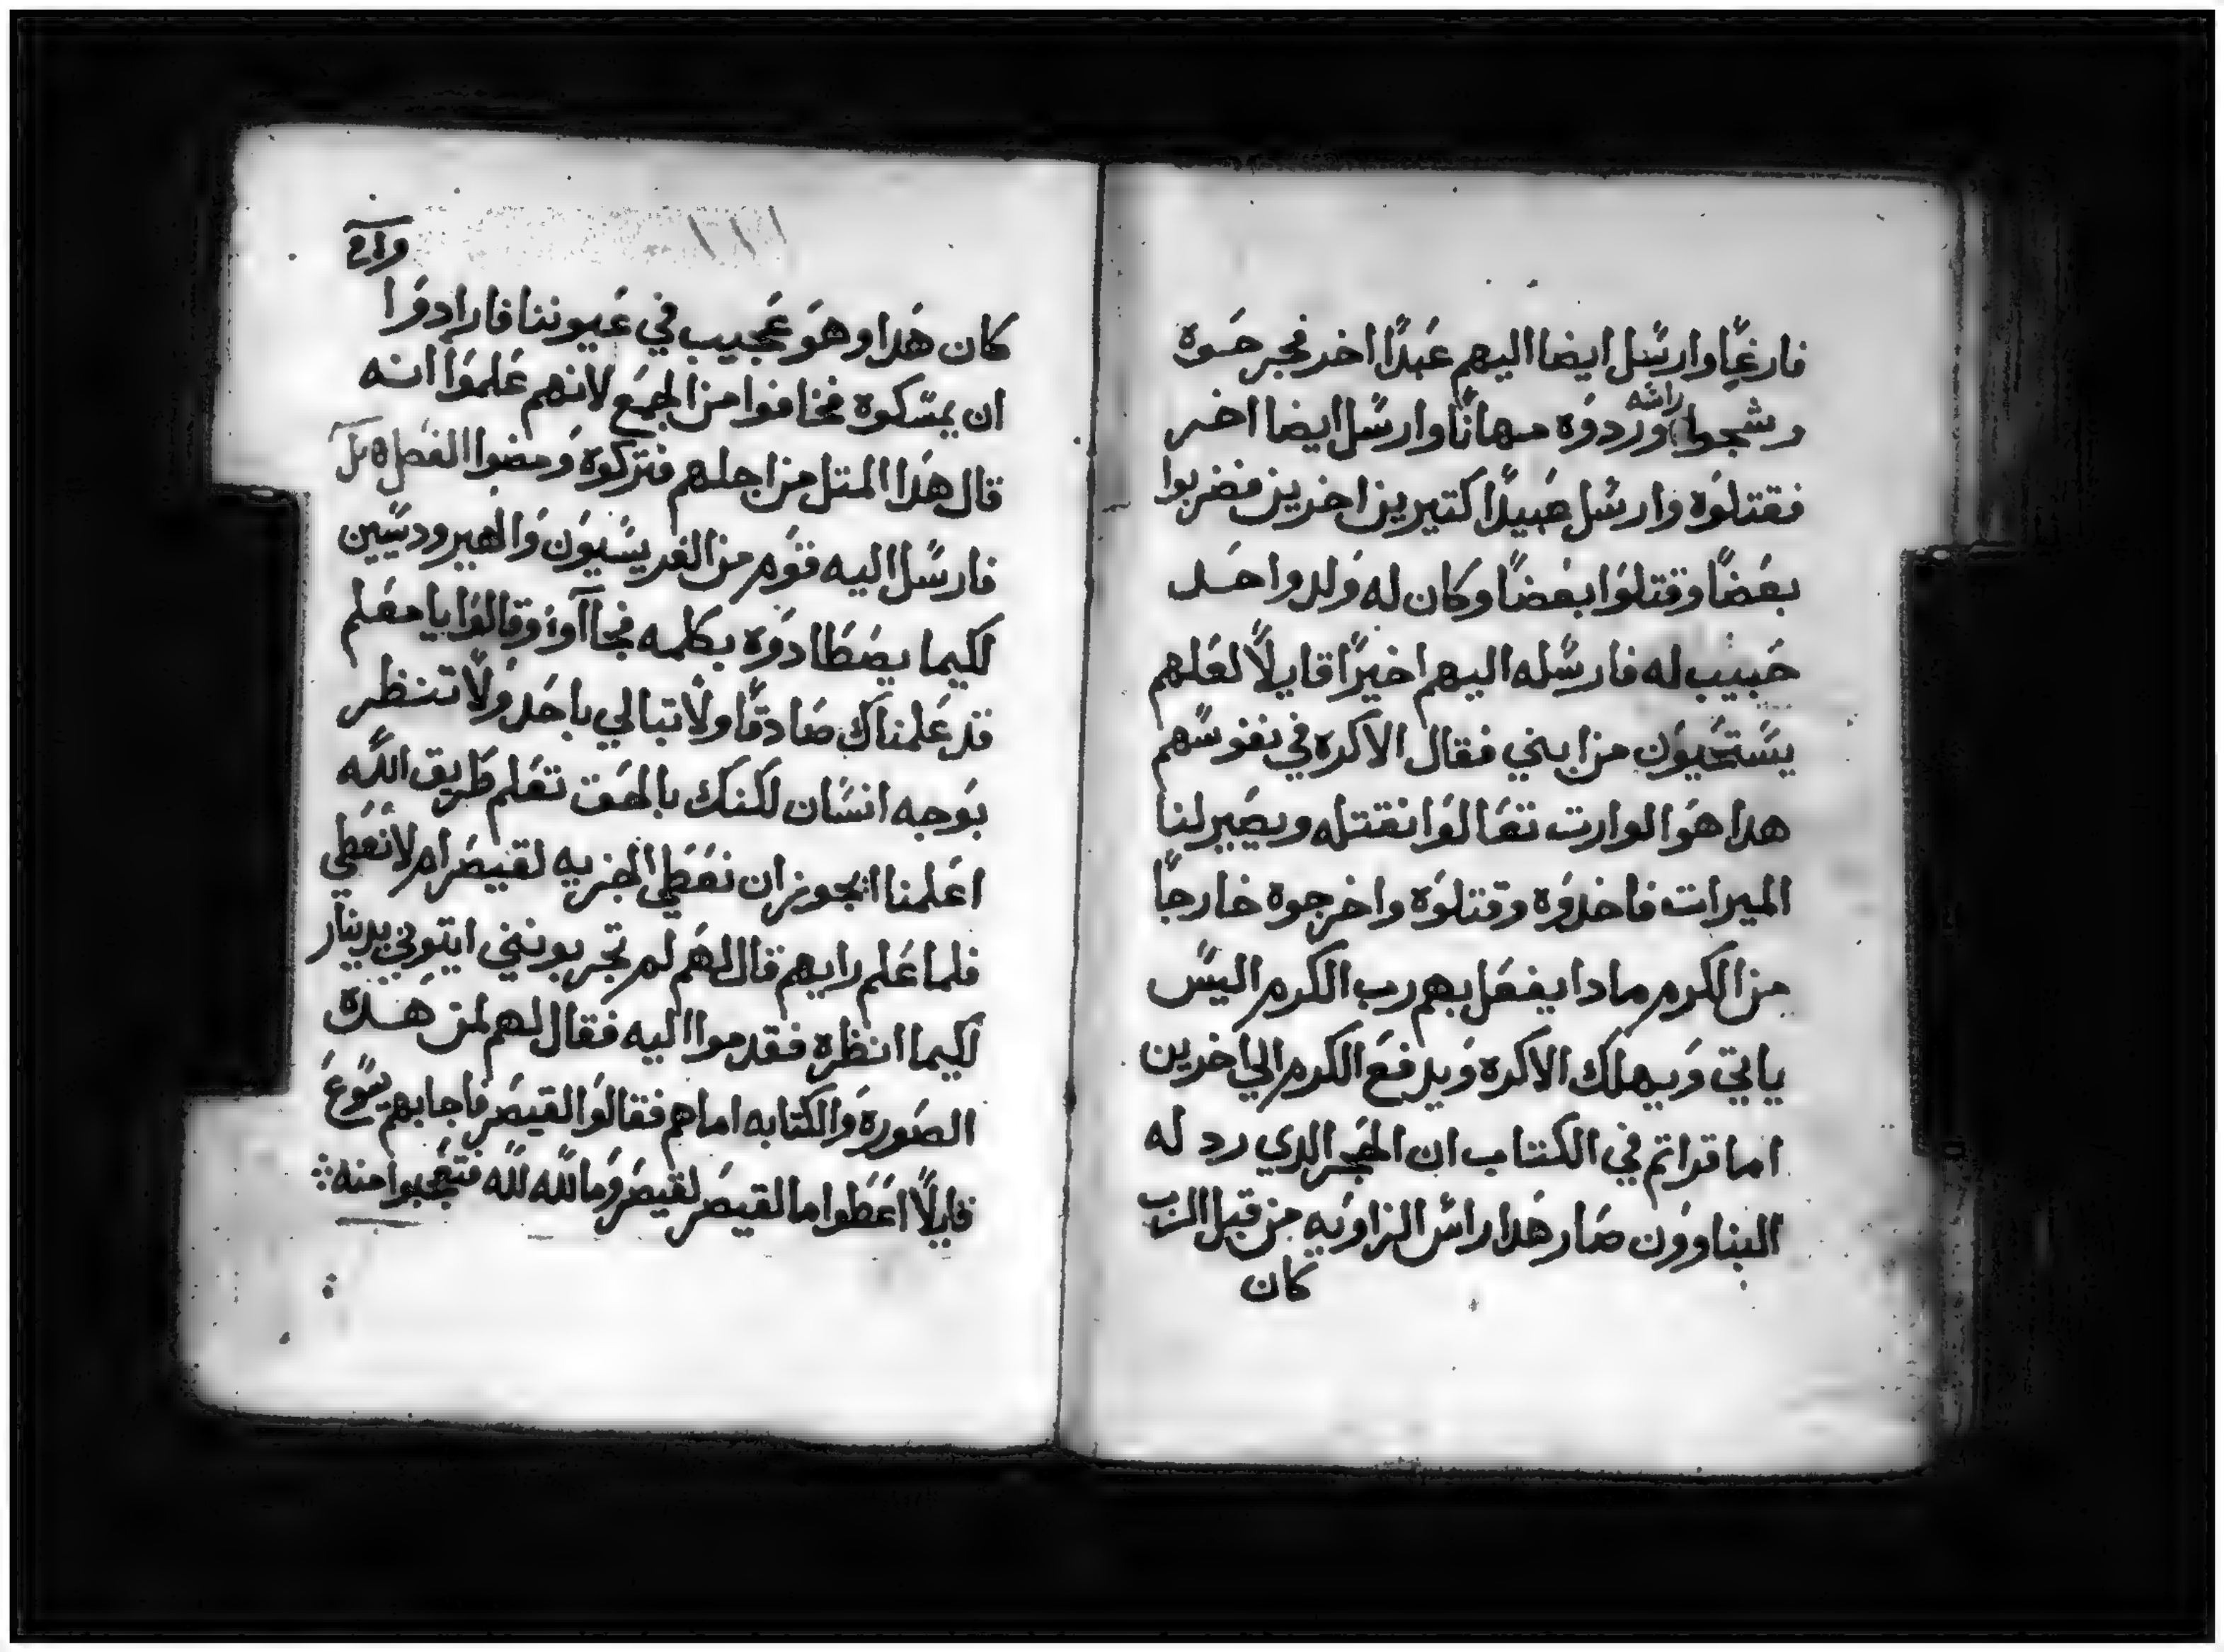 فارغًا وارسل ايضا اليهم عبدًا اخر فجرحوه
وشجوا راسه وردوه مهانًا وارسل ايضا اخر
فقتلوه وارسل عبيدًا كتيرين اخرين فضربوا
بعضًا وقتلوا بعضًا وكان له ولد واحد
حبيب له فارسله اليهم اخيرًا قايلًا لعلهم
يستحيون من ابني فقال الاكره في نفوسهم
هدا هو الوارت تعالوا نقتله ويصير لنا
الميرات فاخدوه وقتلوه واخرجوه خارجًا
من الكرم مادا يفعل بهم رب الكرم اليس
ياتي ويهلك الاكره ويدفع الكرم الي اخرين
اما قراتم في الكتاب ان الحجر الدي رد له
البناوون صار هدا راس الزاويه من قبل الرب
كان
كان هدا وهو عجيب في عيوننا فارادوا
ان يمسكوه فخافوا من الجمع لانهم علموا انه
قال هدا المتل من اجلهم فتركوه ومضوا الفصل
فارسل اليه قوم من الفريسيون والهيرودسيين
لكيما يصطادوه بكلمه فجآاوا وقالوا يا معلم
قد علمناك صادقًا ولا تبالي باحد ولا تنظر
بوجه انسان لكنك بالحق تعلم طريق الله
اعلمنا ايجوز ان نعطي الجزيه لقيصر ام لا نعطي
فلما علم رايهم قال لهم لم تجربونني ايتوني بدينار
لكيما انظره فقدموا اليه فقال لهم لمن هده
الصوره والكتابه اما هم فقالوا لقيصر فاجابهم يسوع
قايلًا اعطوا ما لقيصر لقيصر وما لله لله فتعجبوا منه